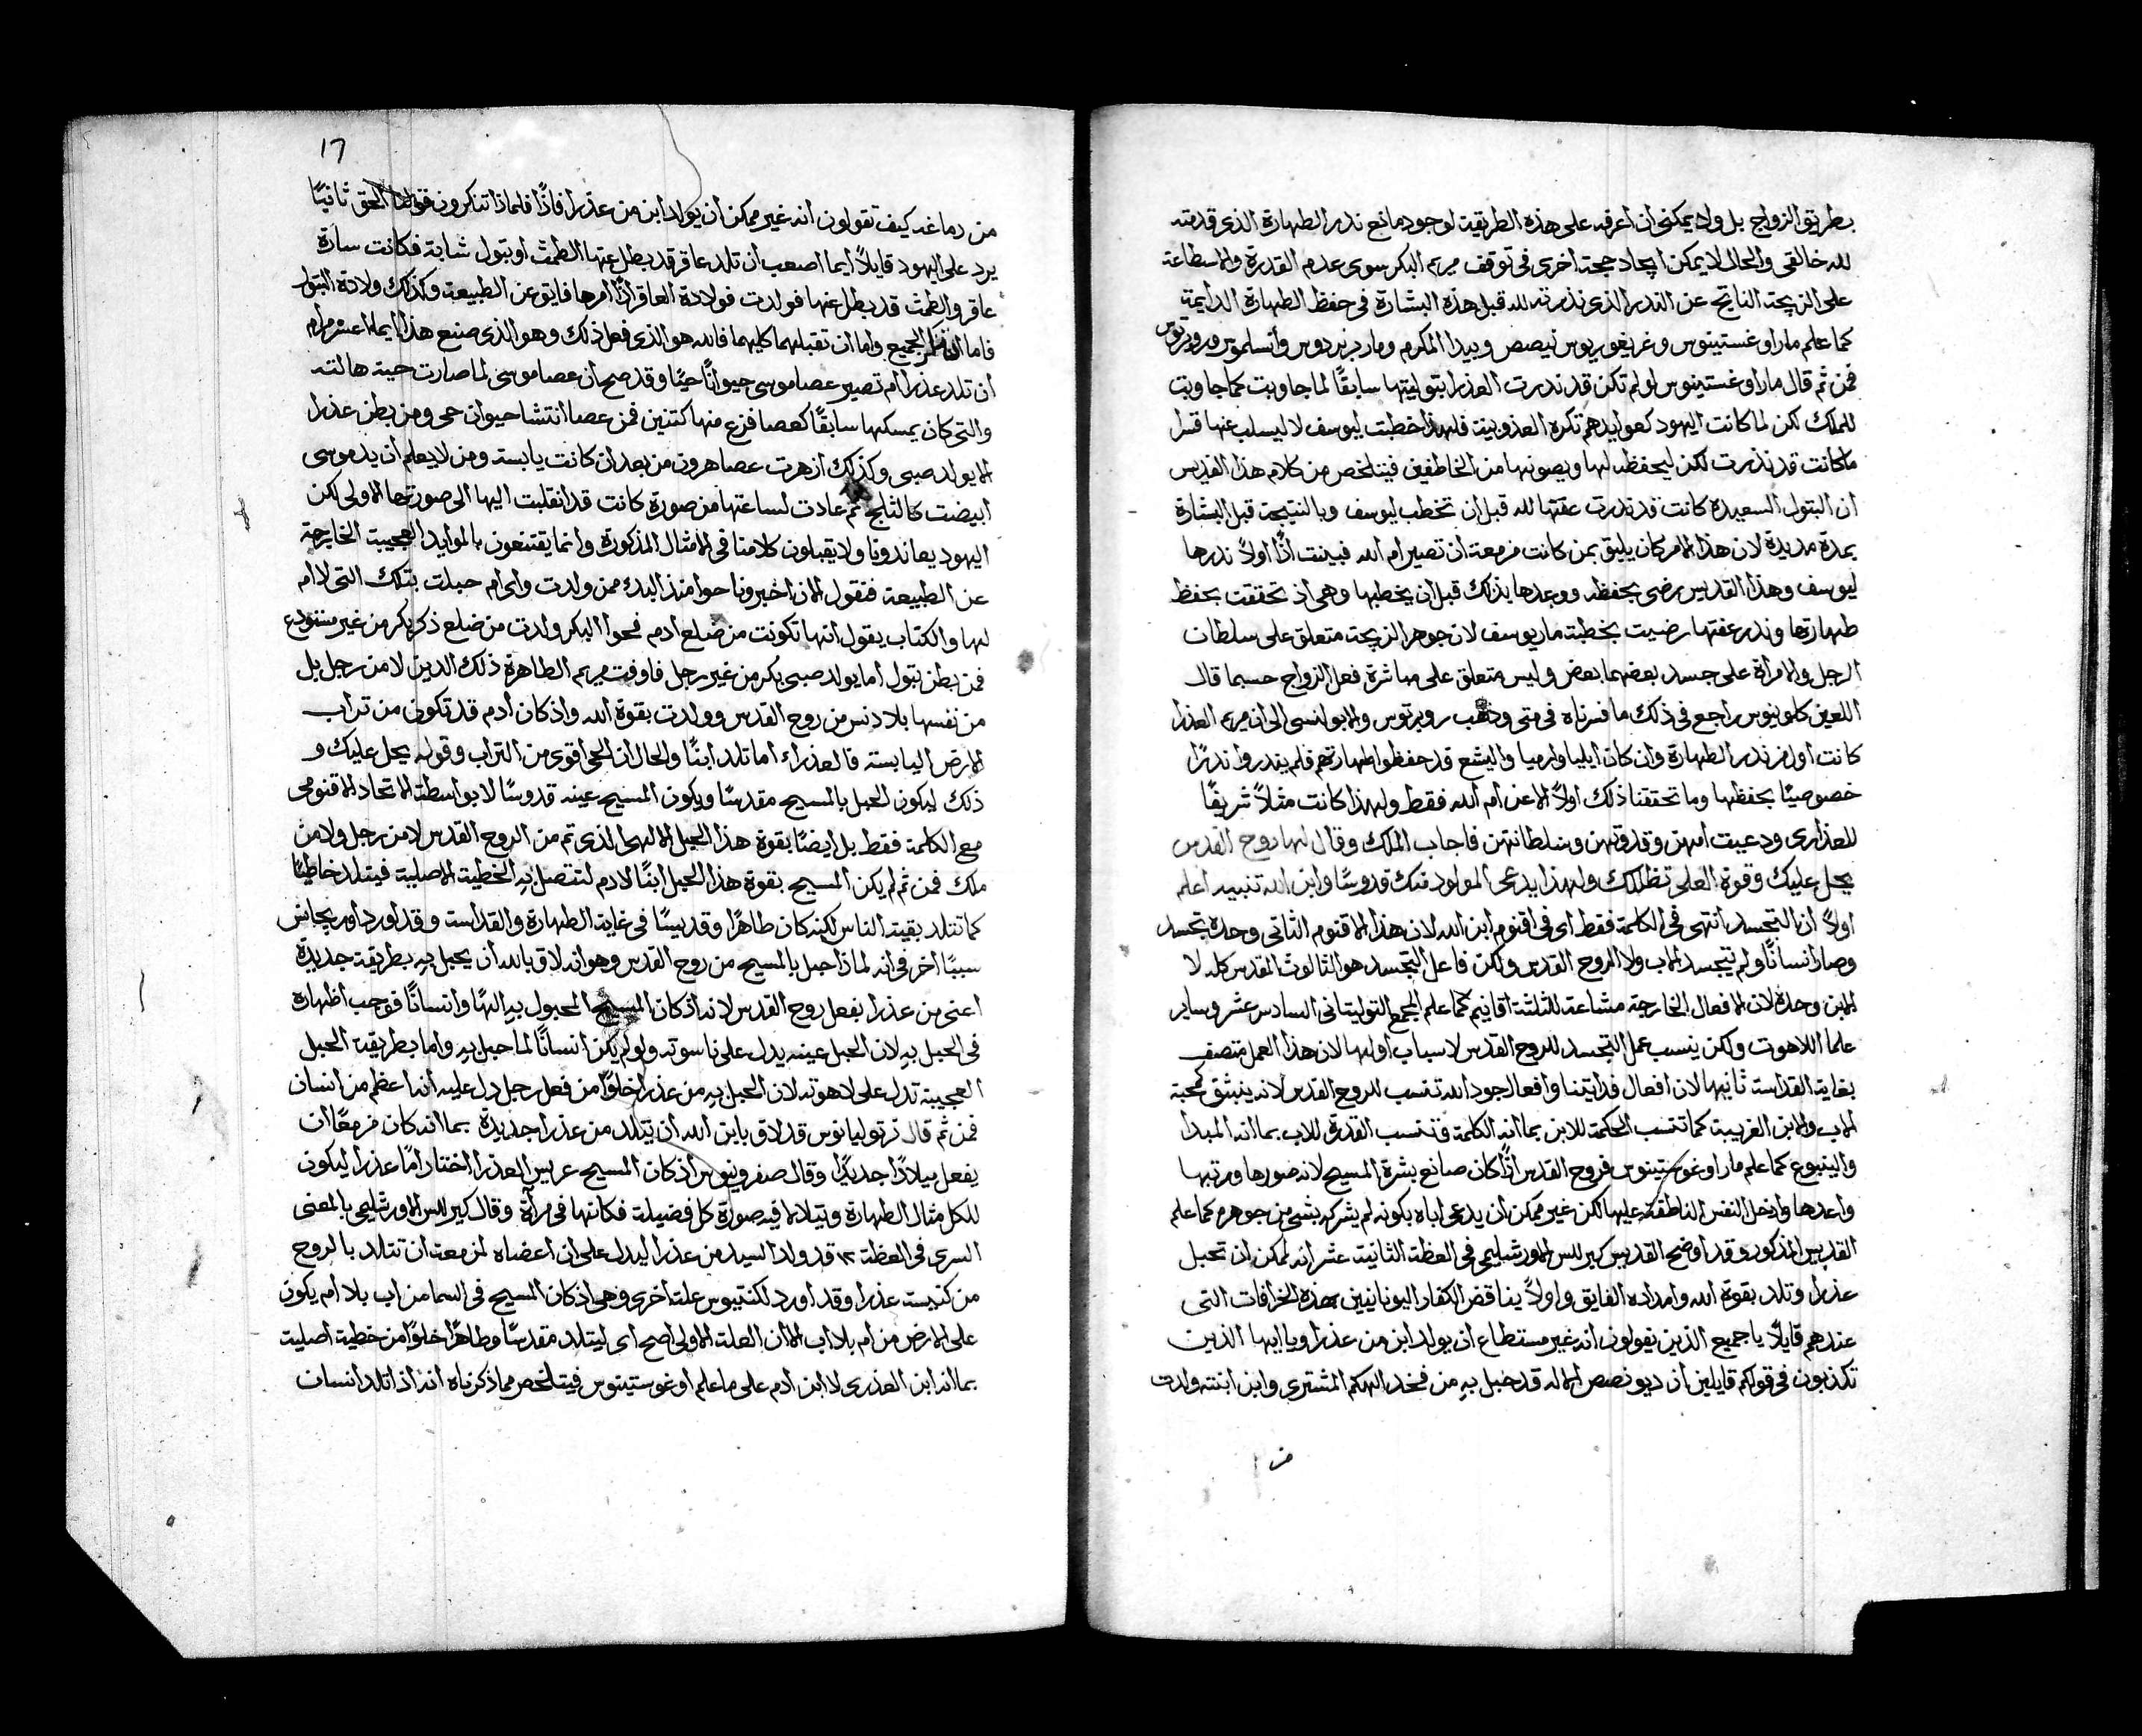 بطريق الزواج بل ولا يمكنني ان اعرفه على هذه الطريقة لوجود مانع ندر الطهارة الذي قدمته
لله خالقي والحال لا يمكن ايجاد حجة اخرى في توقف مريم البكر سوى عدم القدرة والاسطاعة
على الزيجة الناتج عن الندر الذي نذرته لله قبل هذه البشارة في حفظ الطهارة الدايمة
كما علم مار اوغستينوس وغريغوريوس نيصص وبيدا المكرم ومار برنردوس وأنسلموس وروبرتوس
فمن ثم قال مار اوغستينوس لو لم تكن قد ندرت العذرا بتوليتها سابقًا لما جاوبت كما جاوبت
للملك لكن لما كانت اليهود كعوايدهم تكره العذوبية فلهذا خطبت ليوسف لا ليسلب عنها قسرا
ما كانت قد نذرت لكن ليحفظه لها ويصونها من الخاطفين فيتلخص من كلام هذا القديس
ان البتول السعيدة كانت قد ندرت عفتها لله قبل ان تخطب ليوسف وبالنتيجة قبل البشارة
بمدة مديدة لان هذا الامر كان يليق بمن كانت مزمعة ان تصير ام الله فبينت اذًا اولاً ندرها
ليوسف وهذا القديس رضى بحفظه ووعدها بذلك قبل ان يخطبها وهي اذ تحققت بحفظ
طهارتها وندر عفتها رضيت بخطبة مار يوسف لان جوهر الزيجة متعلق على سلطان
الرجل والامرأة على جسد بعضهما بعض وليس متعلق على مباشرة فعل الزواج حسبما قال
اللعين كلوينوس راجع في ذلك ما فسرناه في متى وذهب روبرتوس والابولنسي الى ان مريم العذرا
كانت اول من ندر الطهارة وان كان ايليا وارميا واليشع قد حفظوا طهارتهم فلم يقدروا ندرًا
خصوصيًا بحفظها وما تحققنا ذلك اولاً الا عن ام الله فقط ولهذا كانت مثلاً شريفًا
للعذارى ودعيت امهن وقدوتهن وسلطانتهن فاجاب الملك وقال لها روح القدس
يحل عليك وقوة العلي تظللك ولهذا يدعى المولود منك قدوسًا وابن الله تنبيه اعلم
اولاً ان التجسد انتهى في الكلمة فقط اي في اقنوم ابن الله لان هذا الاقنوم الثاني وحده تجسد
وصار انسانًا ولم يتجسد الاب ولا الروح القدس ولكن فاعل التجسد هو الثالوث المقدس كله لا
الابن وحده لان الافعال الخارجة مشاعة للثلثة اقانيم كما علم المجمع التوليتاني السادس عشر وساير
علما اللاهوت ولكن ينسب عمل التجسد للروح القدس لاسباب اولها لان هذا العمل متصف
بغاية القداسة ثانيها لان افعال فدايتنا وافعال جود الله تنسب للروح القدس لانه ينبثق كمحبة
الاب والابن الغريبة كما تنسب الحكمة للابن بما انه الكلمة وتنسب القدرة للاب بما انه المبدأ
والينبوع كما علم مار اوغوستينوس فروح القدس اذًا كان صانع بشرة المسيح لانه صورها ورتبها
واعدها وادخل النفس الناطقة عليها لكن غير ممكن ان يدعى اباه بكونه لم يشركه بشي من جوهره كما علم
القديس المذكور وقد اوضح القديس كيرللس الاورشليمي في العظة الثانية عشر انه لممكن ان تحبل
عذرا وتلد بقوة الله وامداده الفايق واولاً يناقض الكفار اليونانيين بهذه الخرافات التي
عندهم قايلاً يا جميع الذين تقولون انه غير مستطاع ان يولد ابن من عذرا ويا ايها الذين
تكذبون في قولكم قايلين ان ديونصص الاله قد حبل به من فخد الهكم المشتري وابن ابنته ولدت
من
١٦
من دماغه كيف تقولون انه غير ممكن ان يولد ابن من عذرا فاذًا فلماذا تنكرون قولنا الحق ثانيًا
يرد على اليهود قايلاً ايما اصعب ان تلد عاقر قد بطل عنها الطمث او بتول شابة فكانت سارة
عاقر والطمث قد بطل عنها فولدت فولادة العاقر اذًا امرها فايق عن الطبيعة وكذلك ولادة البتول
فاما ان تنكر الجميع واما ان تقبلهما كليهما فالله هو الذي فعل ذلك وهو الذي صنع هذا ايما اعسر مرام
ان تلد عذرا ام تصير عصا موسى حيوانًا حيًا وقد صح ان عصا موسى لما صارت حية هالته
والتي كان يمسكها سابقًا كعصا فزع منها كتنين فمن عصا انتشا حيوان حي ومن بطن عذرا
الا يولد صبي وكذلك ازهرت عصا هرون من بعد ان كانت يابسة ومن لا يعلم ان يد موسى
ابيضت كالثلج ثم عادت لساعتها من صورة كانت قد انقلبت اليها الى صورتها الاولى لكن
اليهود يعاندونا ولا يقبلون كلامنا في الامثال المذكورة وانما يقتنعون بالمواليد العجيبة الخارجة
عن الطبيعة فنقول الان اخبرونا حوا منذ البدء ممن ولدت واي ام حبلت بتلك التي لا ام
لها والكتاب يقول انها تكونت من ضلع ادم فحوا البكر ولدت من ضلع ذكر بكر من غير مستودع
فمن بطن بتول أما يولد صبي بكر من غير رجل فاوفت مريم الطاهرة ذلك الدين لا من رجل بل
من نفسها بلا دنس من روح القدس وولدت بقوة الله واذ كان ادم قد تكون من تراب
الارض اليابسة فالعذراء اما تلد ابنًا والحال ان الحي اقوى من التراب وقوله يحل عليك و
ذلك ليكون الحبل بالمسيح مقدسًا ويكون المسيح عينه قدوسًا لا بواسطة الاتحاد الاقنومي
مع الكلمة فقط بل ايضًا بقوة هذا الحبل الالهي الذي تم من الروح القدس لا من رجل ولا من
ملك فمن ثم لم يكن المسيح بقوة هذا الحبل ابنًا لادم لتتصل به الخطية الاصلية فيتلد خاطيًا
كما تتلد بقية الناس لكنه كان طاهرًا وقديسًا في غاية الطهارة والقداسة وقد اورد اوريجانس
سببًا آخر في انه لماذا حبل بالمسيح من روح القدس وهو انه لاق بالله ان يحبل به بطريقة جديدة
اعني من عذرا بفعل روح القدس لانه اذ كان المسيح المحبول به الهًا وانسانًا فوجب اظهاره
في الحبل به لان الحبل عينه يدل على ناسوته ولو لم يكن انسانًا لما حبل به واما بطريقة الحبل
العجيبة تدل على لاهوته لان الحبل به من عذرا خلوًا من فعل رجل دل عليه انه اعظم من انسان
فمن ثم قال ترتوليانوس قد لاق بابن الله ان يتلد من عذرا جديدة بما انه كان مزمعًا ان
يفعل ميلادًا جديدًا وقال صفرونيوس اذ كان المسيح عريس العذرا اختار امًا عذرا ليكون
للكل مثال الطهارة وتتلالا فيه صورة كل فضيلة فكانها في مرآة وقال كيرللس الاورشليمي بالمعنى
السري في العظة ١٢ قد ولد السيد من عذرا ليدل على ان اعضاه لمزمعة ان تتلد بالروح
من كنيسة عذرا وقد اورد لكتنسيوس علة اخرى وهي اذ كان المسيح في السما من اب بلا ام يكون
على الارض من ام بلا اب الا ان العلة الاولى اصح اي ليتلد مقدسًا وطاهرًا خلوًا من خطية اصلية
بما انه ابن العذرى لا ابن ادم على ما علم اوغوستينوس فيتلخص مما ذكرناه انه اذا تلد انسان